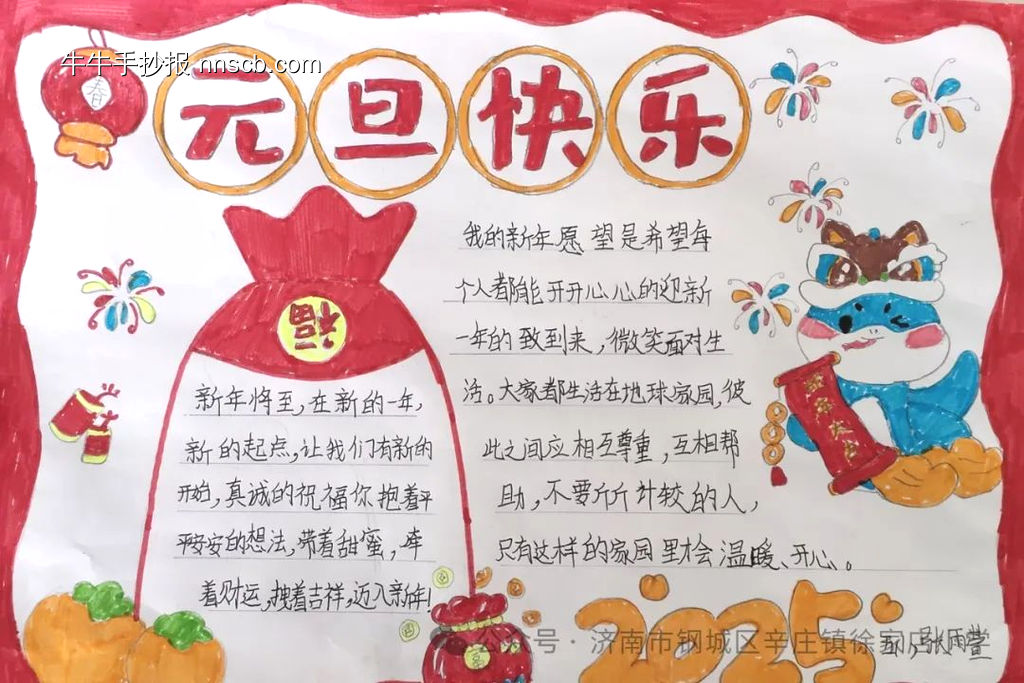 牛牛手抄报 nnscb.com
春
元旦快乐
福
新年将至,在新的一年,
新的起点,让我们有新的
开始,真诚的祝福你抱着平
平安安的想法,带着甜蜜,牵
着财运,拽着吉祥,迈入新年!
我的新年愿望是希望每
个人都能开开心心的迎新
一年的致到来,微笑面对生
活。大家都生活在地球家园,彼
此之间应相互尊重,互相帮
助,不要斤斤计较的人,
只有这样的家园里才会温暖、开心。
2025
公众号·济南市钢城区辛庄镇徐
张雨萱